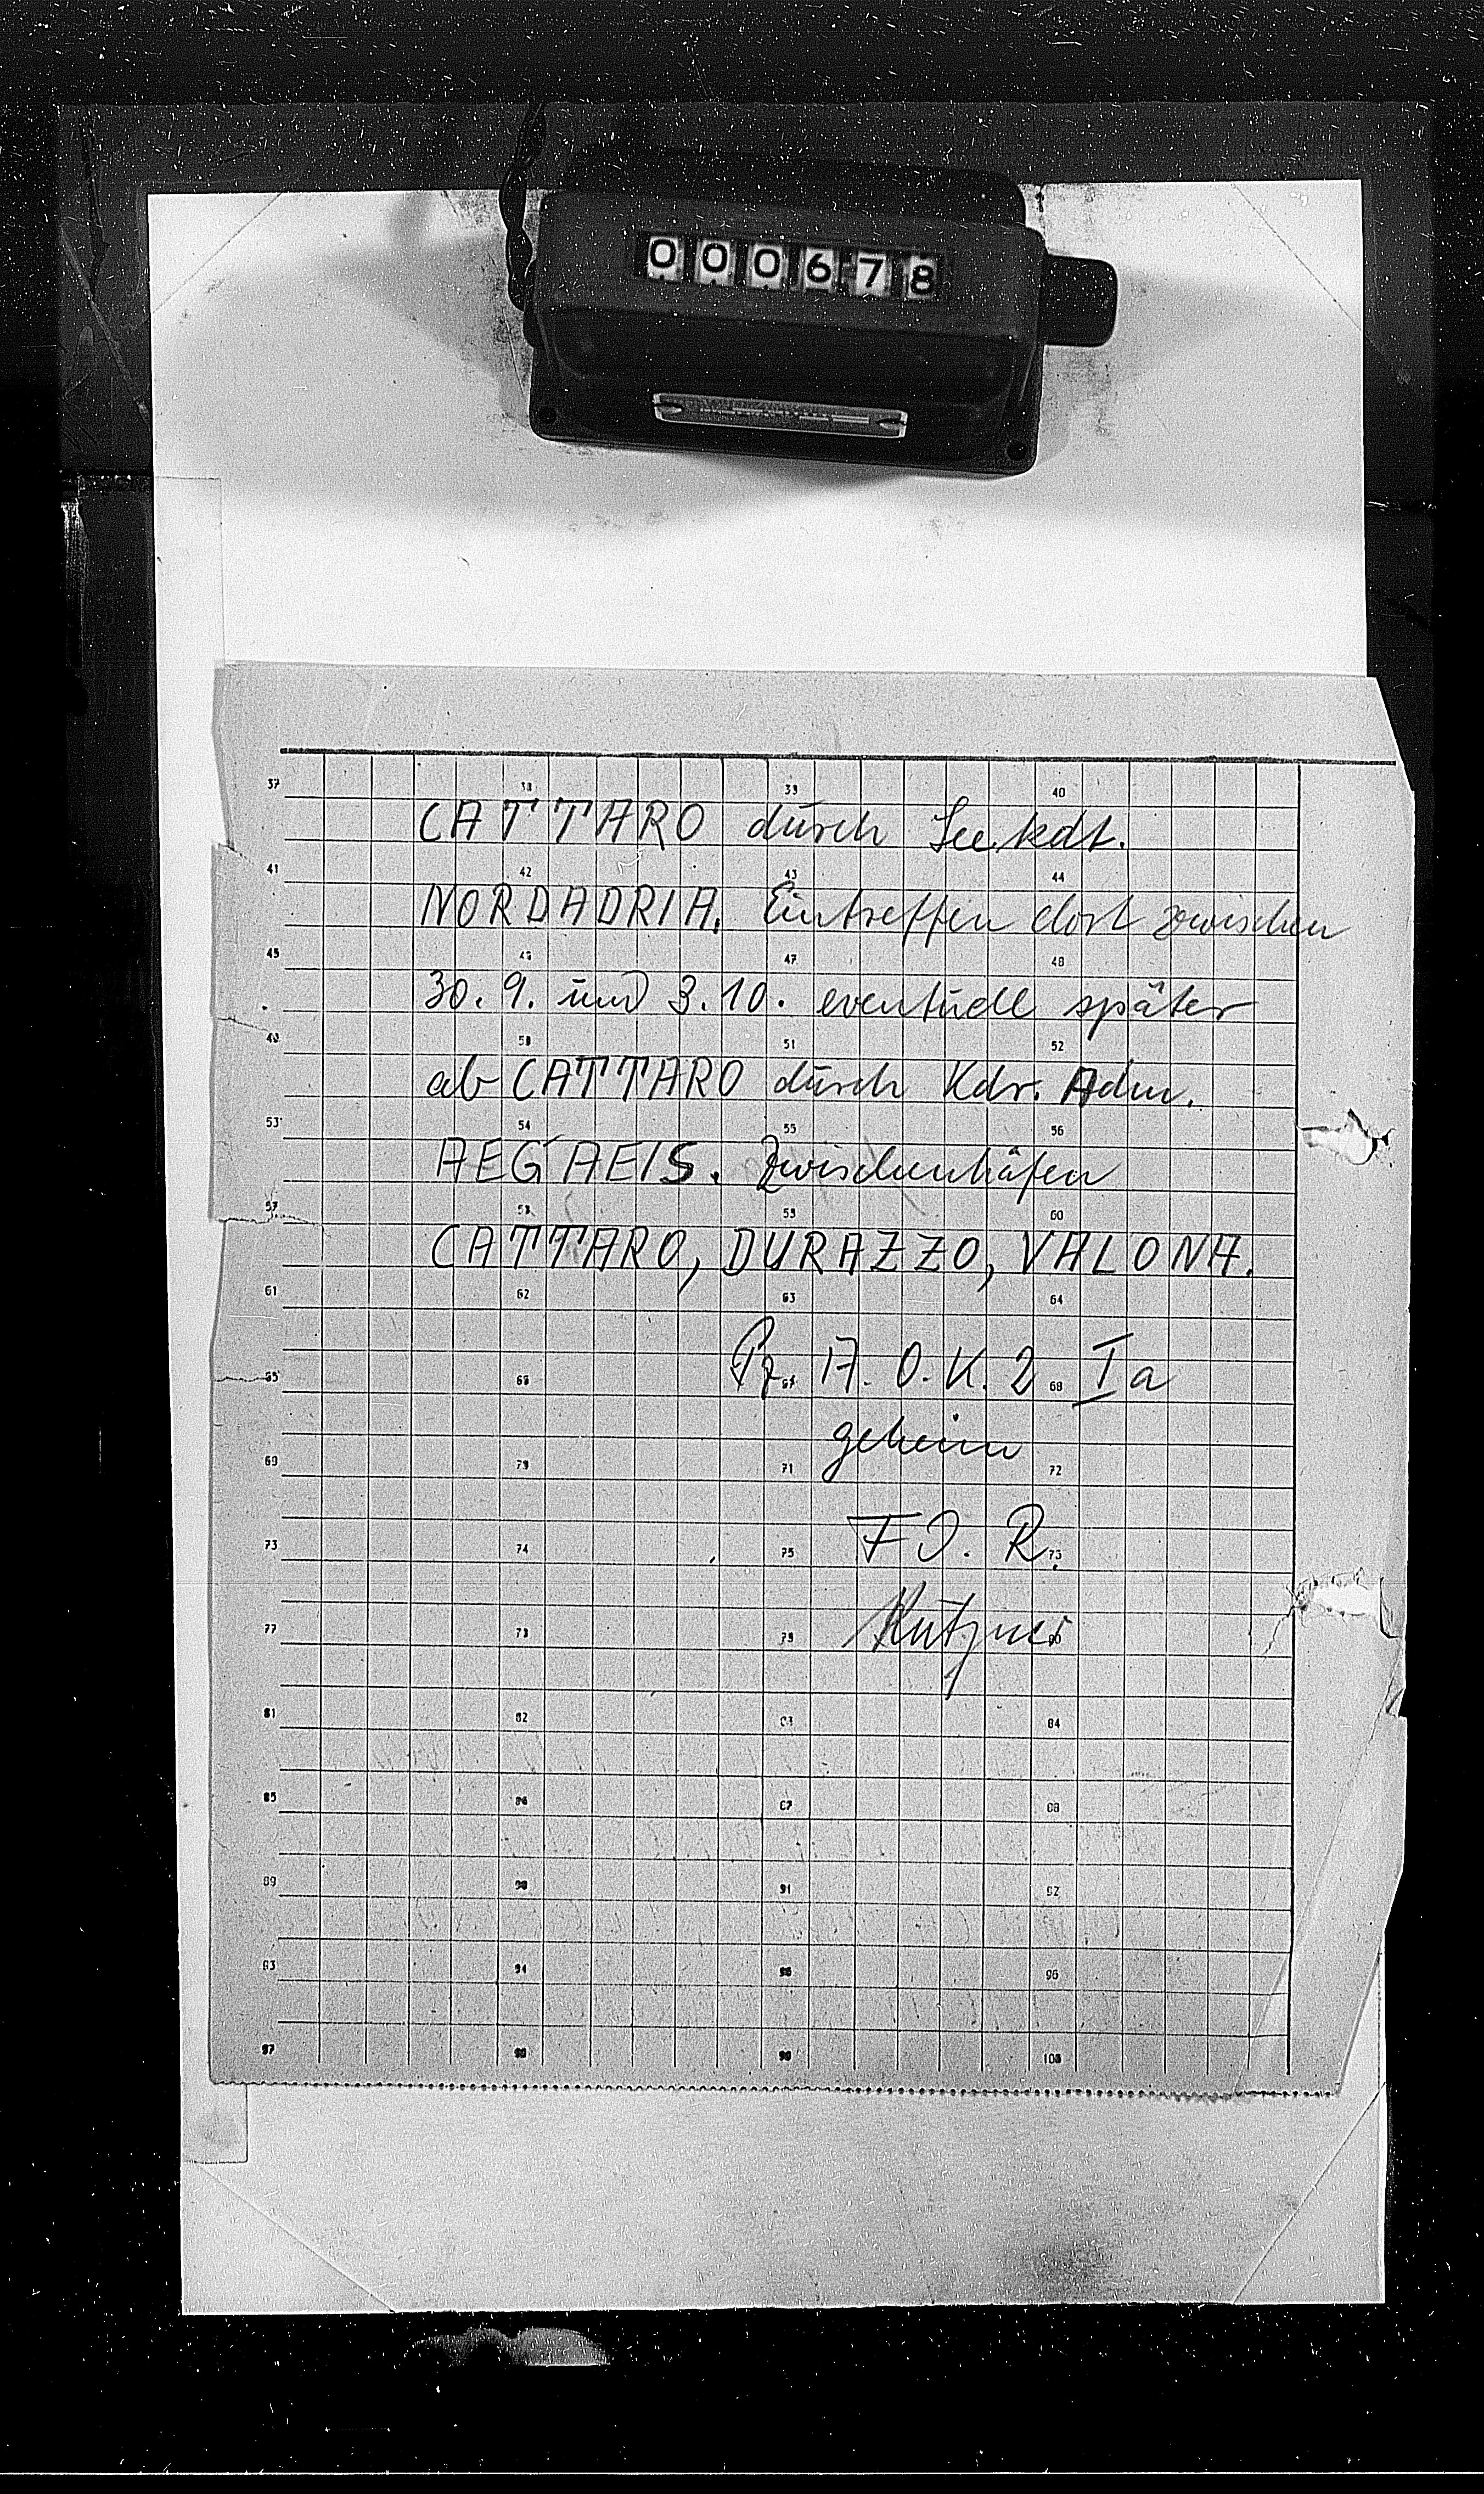 000678
37 38 39 40
CATTARO durch Seekdt.
41 42 43 44
NORDADRIA. Eintreffen dort zwischen
45 46 47 48
30.9. und 3.10. eventuell später
49 50 51 52
ab CATTARO durch Kdr. Adm.
53 54 55 56
AEGAEIS. Zwischenhäfen
57 58 59 60
CATTARO, DURAZZO, VALONA.
61 62 63 64
Pz. A.O.K. 2 Ia
65 66 67 68
geheim
69 70 71 72
F.d.R.
73 74 75 76
Kutzner
77 78 79 80
81 82 83 84
85 86 87 88
89 90 91 92
93 94 95 96
97 98 99 100